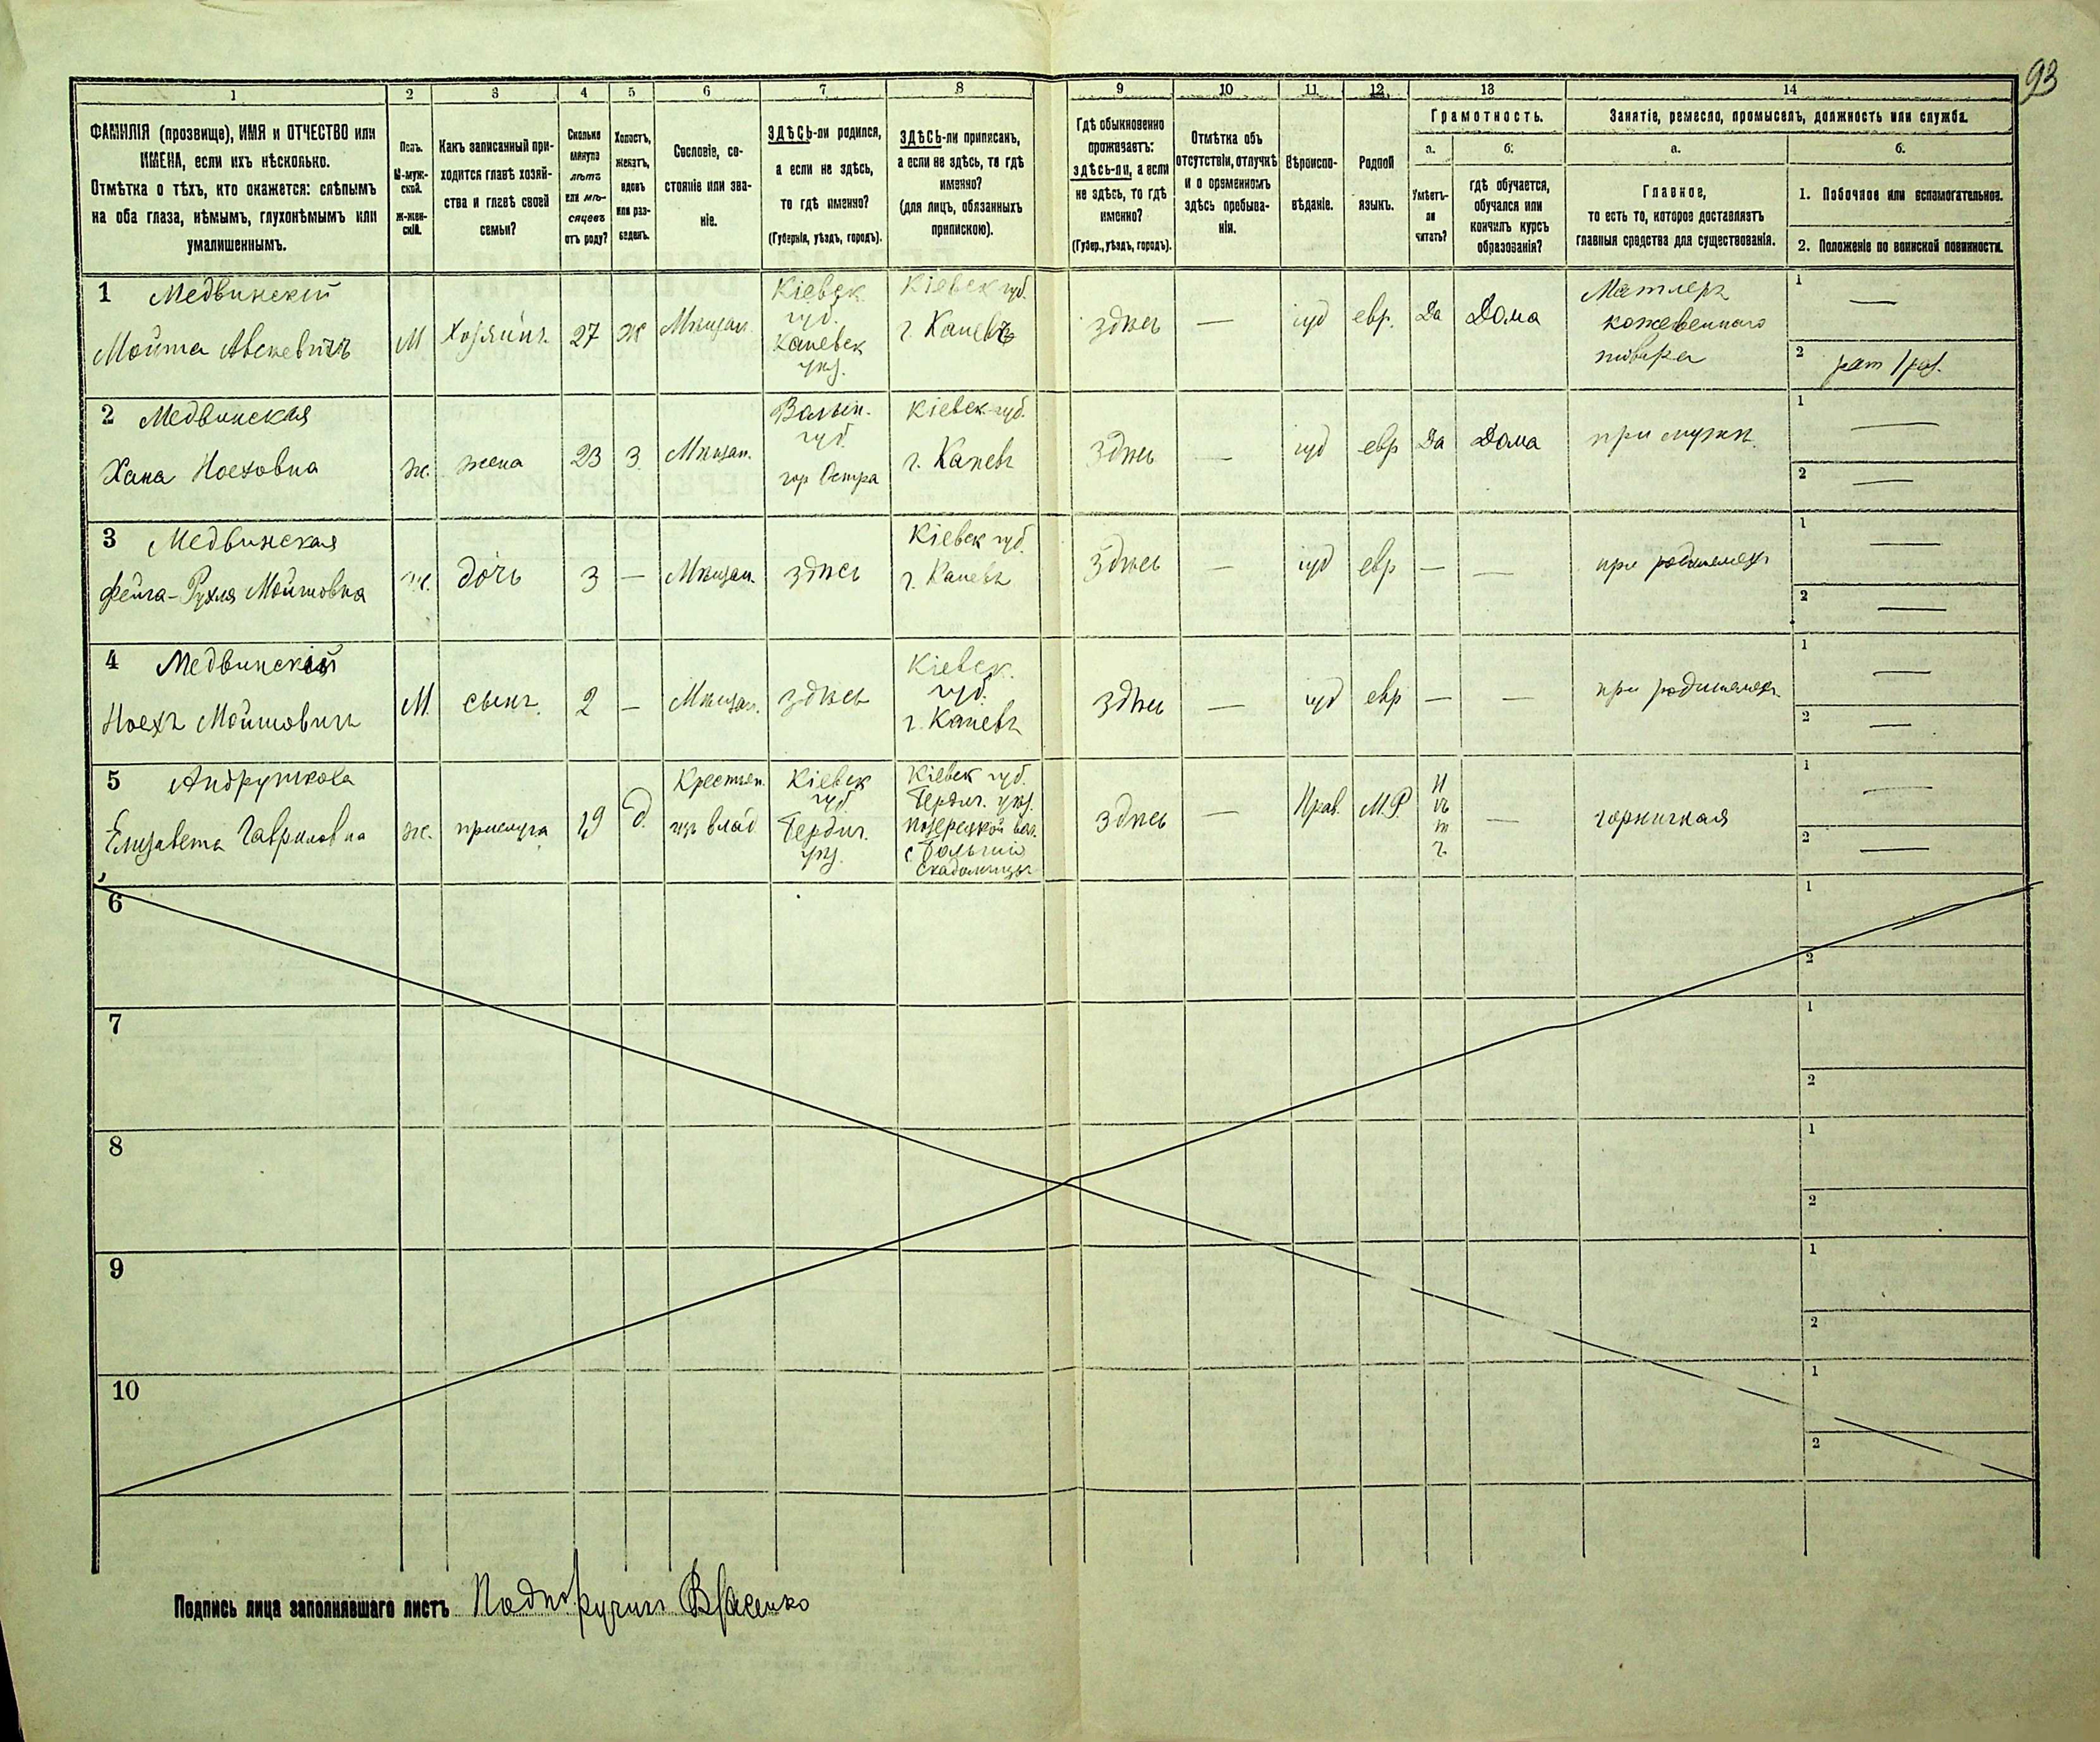 93
1 2 3 4 5 6 7 8 9 10 11 12 13 14
ФАМИЛІЯ (прозвище), ИМЯ и ОТЧЕСТВО или
ИМЕНА, если ихъ нѣсколько.
Отмѣтка о тѣхъ, кто окажется: слѣпымъ
на оба глаза, нѣмымъ, глухонѣмымъ или
умалишеннымъ.
Полъ.
М-муж-
ской.
Ж-жен-
скій.
Какъ записанный при-
ходится главѣ хозяй-
ства и главѣ своей
семьи?
Сколько
минуло
лѣтъ
или мѣ-
сяцевъ
отъ роду?
Холостъ,
женатъ,
вдовъ
или раз-
веденъ.
Сословіе, со-
стояніе или зва-
ніе.
ЗДѢСЬ-ли родился,
а если не здѣсь,
то гдѣ именно?
(Губернія, уѣздъ, городъ).
ЗДѢСЬ-ли приписанъ,
а если не здѣсь, то гдѣ
именно?
(для лицъ, обязанныхъ
припискою).
Гдѣ обыкновенно
проживаетъ:
здѣсь-ли, а если
не здѣсь, то гдѣ
именно?
(Губер., уѣздъ, городъ).
Отмѣтка объ
отсутствіи, отлучкѣ
и о временномъ
здѣсь пребыва-
ніи.
Вѣроиспо-
вѣданіе.
Родной
языкъ.
Грамотность.
а.
Умѣетъ-
ли
читать?
б.
гдѣ обучается,
обучался или
кончилъ курсъ
образованія?
Занятіе, ремесло, промыселъ, должность или служба.
а.
Главное,
то есть то, которое доставляетъ
главныя средства для существованія.
б.
1. Побочное или вспомогательное.
2. Положеніе по воинской повинности.
1 Медвинскій
Мойша Авскевичъ
М
Хозяинъ
27
ж
Мѣщан.
Кіевск.
губ.
Каневск
уѣз.
Кіевск губ.
г. Каневъ
здѣсь
—
іуд
евр.
Да
Дома
кожевеннаго
товара
1 —
2
2 Медвинская
Хана Ноеховна
ж.
жена
23
З
Мѣщан.
Волын.
губ.
гор Остра
Кіевск губ.
г. Каневъ
здѣсь
—
іуд
евр
Да
Дома
при мужѣ.
1 —
2 —
3 Медвинская
Фейга-Рухля Мойшовна
ж.
дочь
3
—
Мѣщан.
здѣсь
Кіевск губ.
г. Каневъ
здѣсь
—
іуд
евр
—
—
при родителяхъ
1 —
2 —
4 Медвинскій
Ноехъ Мойшовичъ
М.
сынъ
2
—
Мѣщан.
здѣсь
Кіевск.
губ.
г. Каневъ
здѣсь
—
іуд
евр
—
—
при родителяхъ
1 —
2 —
5 Андрушкова
Елизавета Гавриловна
ж.
прислуга
19
д.
Крестьян.
изъ влад.
Кіевск
губ
Бердич.
уѣз.
Кіевск губ.
Бердич. уѣз.
здѣсь
—
Прав.
М.Р.
Нѣтъ
—
горничная
1 —
2 —
6
1
2
7
1
2
8
1
2
9
1
2
10
1
2
Подпись лица заполнявшаго листъ Подпоручикъ Власенко